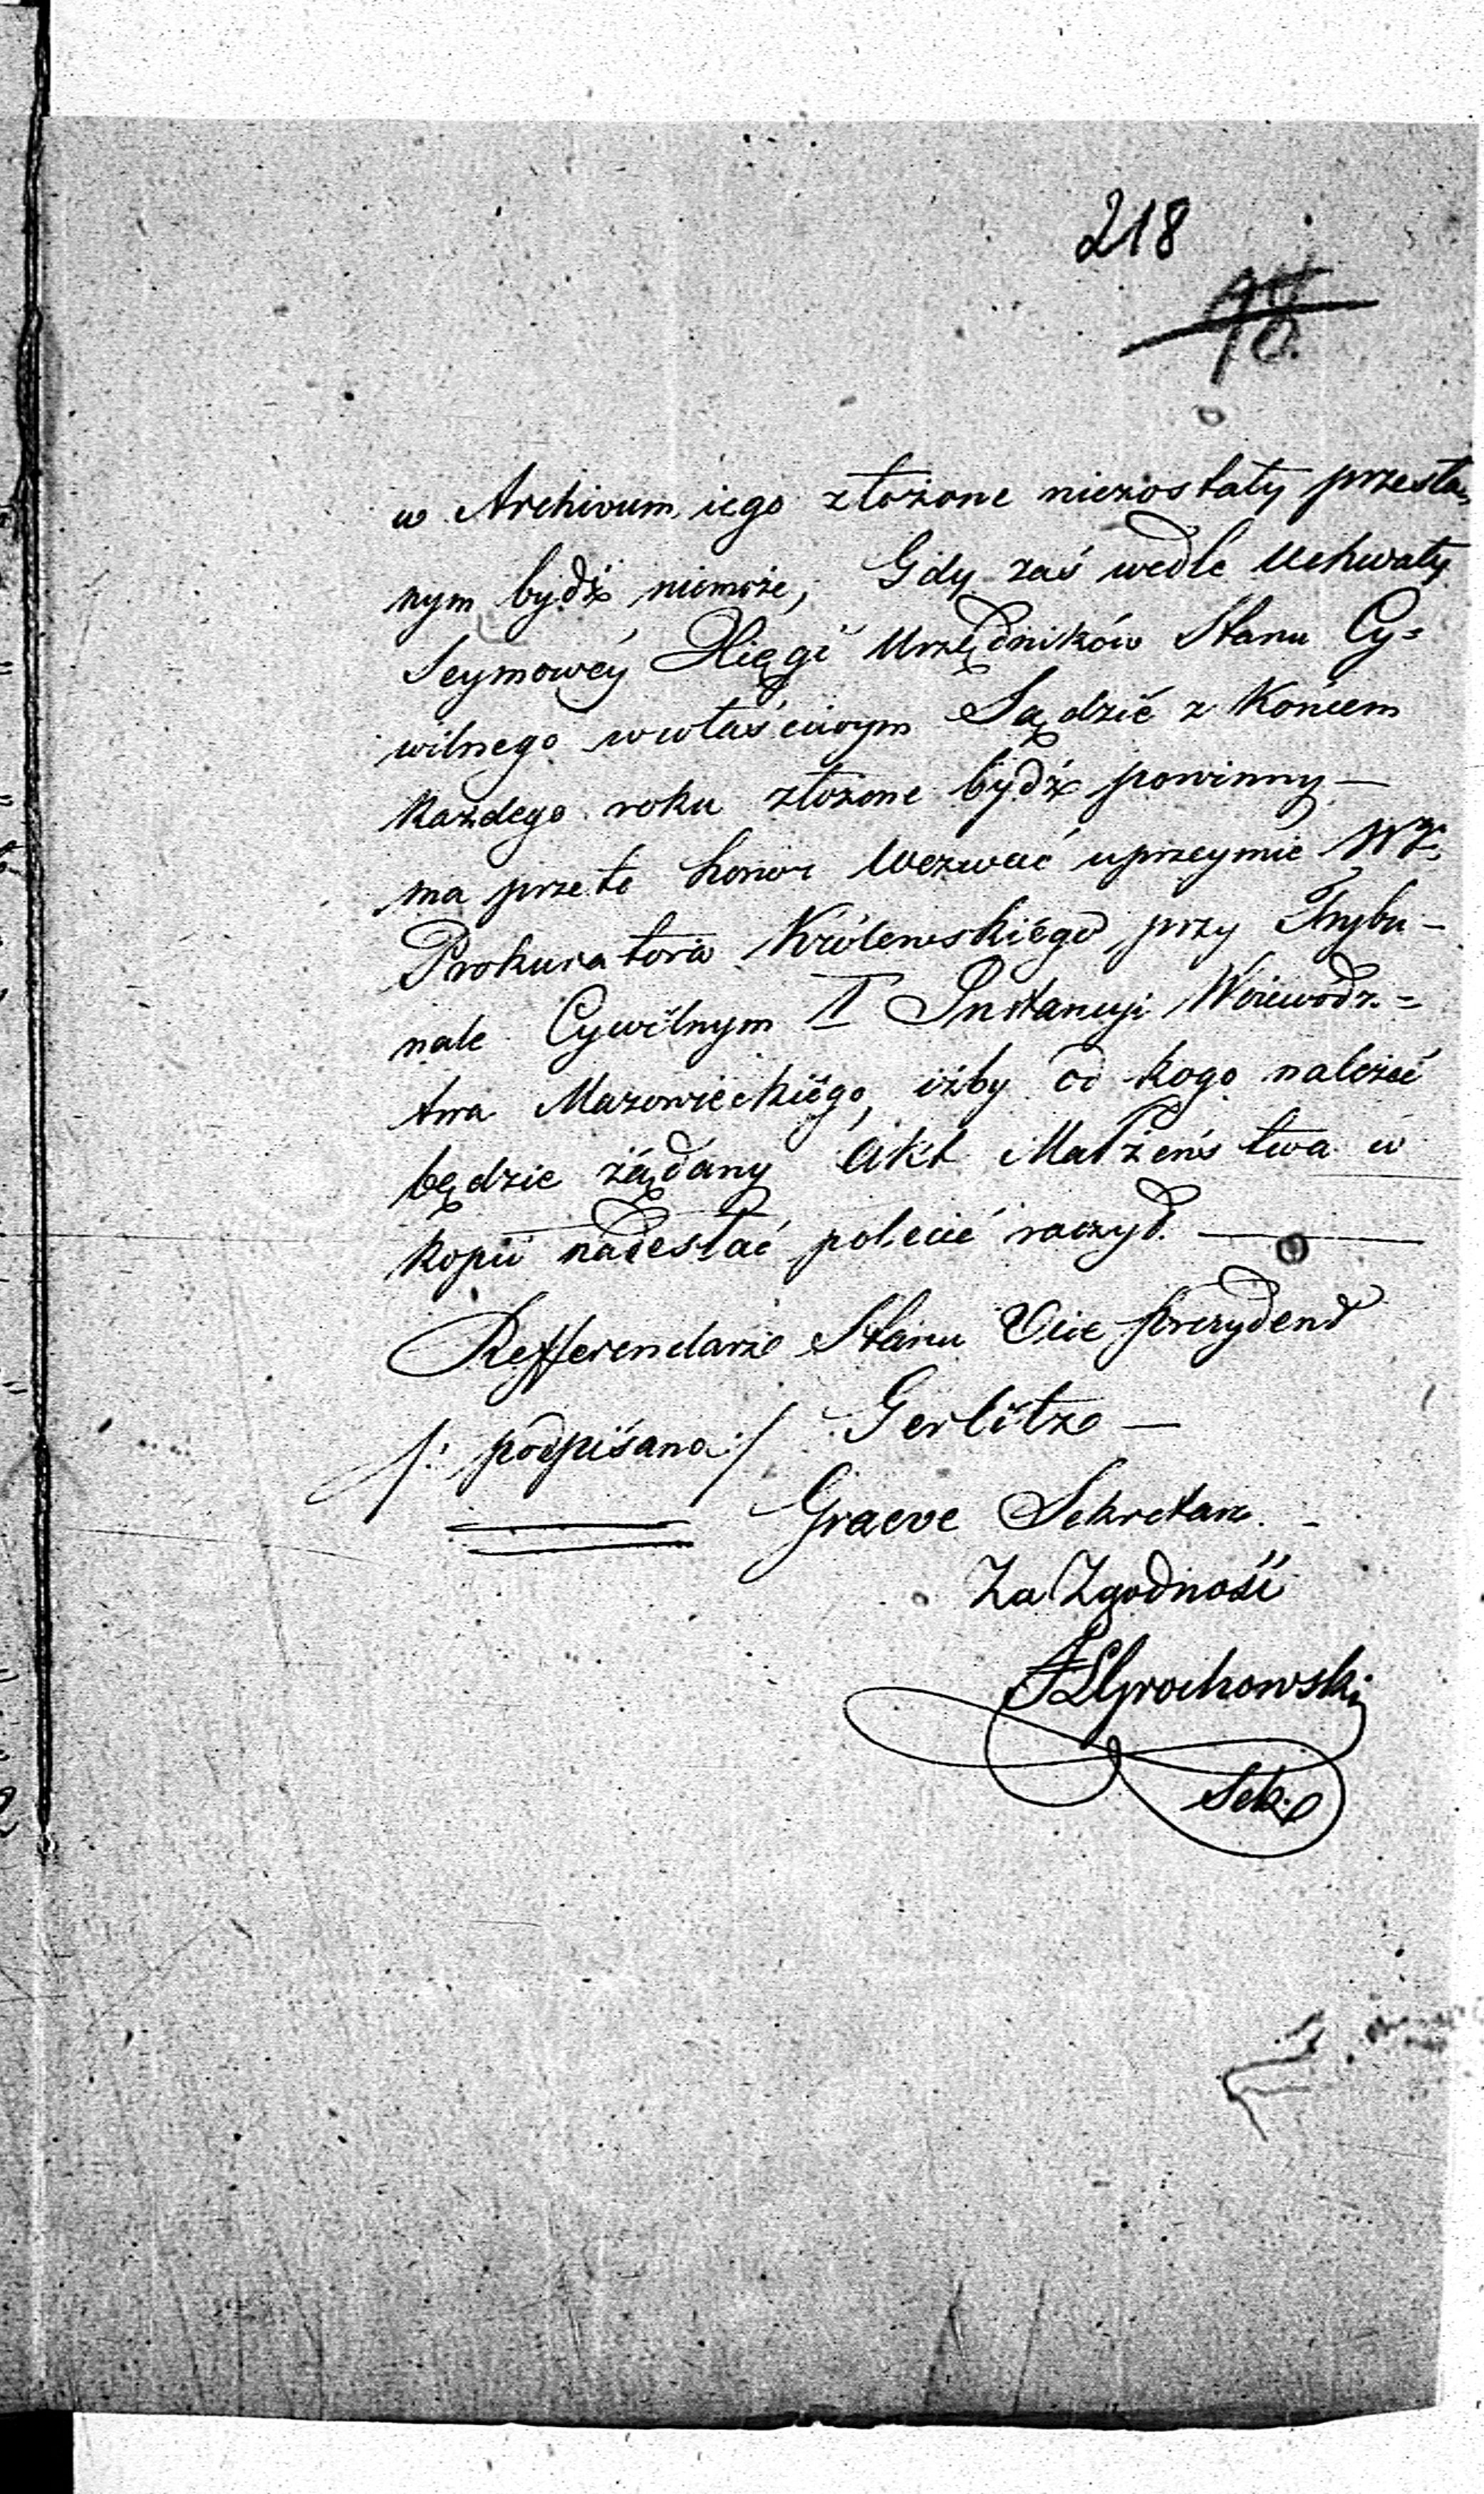 218
98.
w Archivum iego złożone niezostały przesła„
nym bydź niemoże, Gdy zaś wedle Uchwały
Seymowéy Xięgi Urzędników Stanu Cy=
wilnego wwłaściwym Sądzie z Końcem
Każdego roku złożone bydź powinny —
ma przeto honor wezwać uprzeymie WJ.
Prokuratora Królewskiego przy Trybu-
nale Cywilnym I Instancyi Woiewodz.=
twa Mazowieckiego, iżby od kogo należeć
będzie żądany Akt Małżeństwa w
kopii nadesłać polecić raczył. —
Refferendarz Stanu Vice Prezydent
/: podpisano :/ Gerlitz —
Graeve Sekretarz. -
Za Zgodność
Grochowski
Sek: